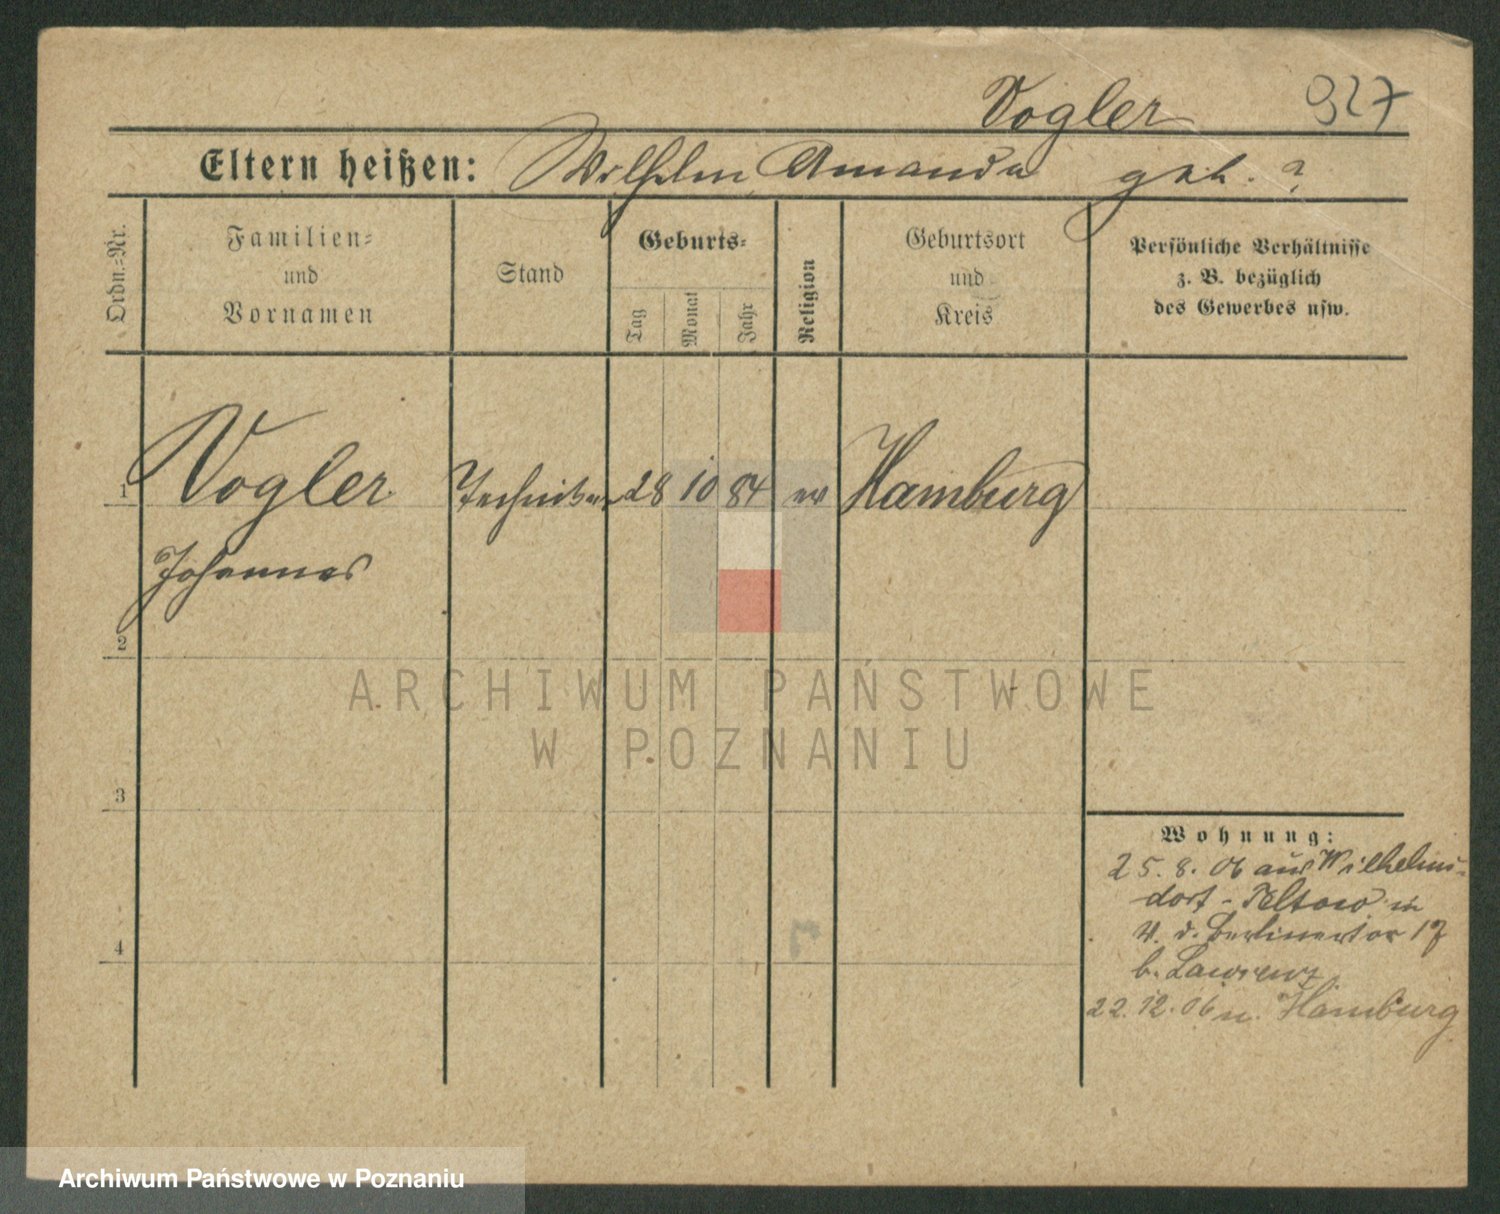 Vogler 927
Eltern heißen: Wilhelm Amanda geb. ?
Ordn.-Nr.
Familien-
und
Vornamen
Stand
Geburts-
Tag
Monat
Jahr
Religion
Geburtsort
und
Kreis
Persönliche Verhältnisse
z. B. bezüglich
des Gewerbes usw.
1 Vogler Techniker 28 10 84 ev Hamburg
Johannes
2
3
4
Wohnung:
25. 8. 06 aus Wilhelms-
dorf - Teltow in
V. d. Berlinertor 17
b. Lawrenz
22. 12. 06 n. Hamburg
ARCHIWUM PAŃSTWOWE
W POZNANIU
Archiwum Państwowe w Poznaniu